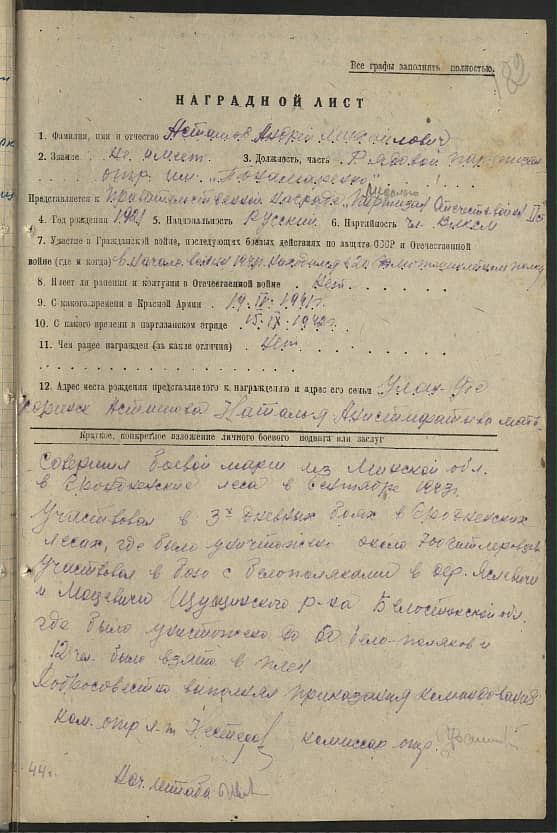 Все графы заполнять полностью.
182
НАГРАДНОЙ ЛИСТ
1. Фамилия, имя и отчество Асташов Андрей Михайлович
2. Звание не имеет 3. Должность, часть Рядовой партизан
отр. им. "Понамаренко"
Представляется к Правительственной награде Медалью "Партизан Отечеств. войны" II ст
4. Год рождения 1921 5. Национальность Русский 6. Партийность чл. ВЛКСМ
7. Участие в Гражданской войне, последующих боевых действиях по защите СССР и Отечественной
войне (где и когда) в начале войны 1941г.
8. Имеет ли ранения и контузии в Отечественной войне Нет.
9. С какого времени в Красной Армии 1941г.
10. С какого времени в партизанском отряде 15.IX.1942г.
11. Чем ранее награжден (за какие отличия) Нет
12. Адрес места рождения представляемого к награждению и адрес его семьи Улан-Уде
Асташова Наталья мать
Краткое, конкретное изложение личного боевого подвига или заслуг
Совершил боевой марш из Минской обл.
в Гродненские леса в сентябре 1943г.
Участвовал в 3х дневных боях в Гродненских
лесах, где было уничтожено около 700 гитлеровцев
Участвовал в бою с белополяками в дер. Яслевичи
и Мацевичи Щучинского р-на Белостокской обл.
где было уничтожено до 60 бело-поляков и
12 чел. было взято в плен
Добросовестно выполнял приказания командования
Ком. отр л-т Нестеров комиссар отр.
44г.
Нач. штаба